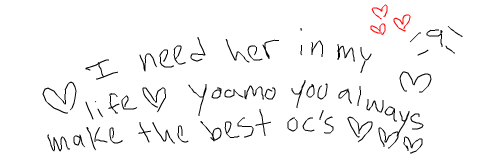 I need her in my
life yoamo you always
make the best oc's